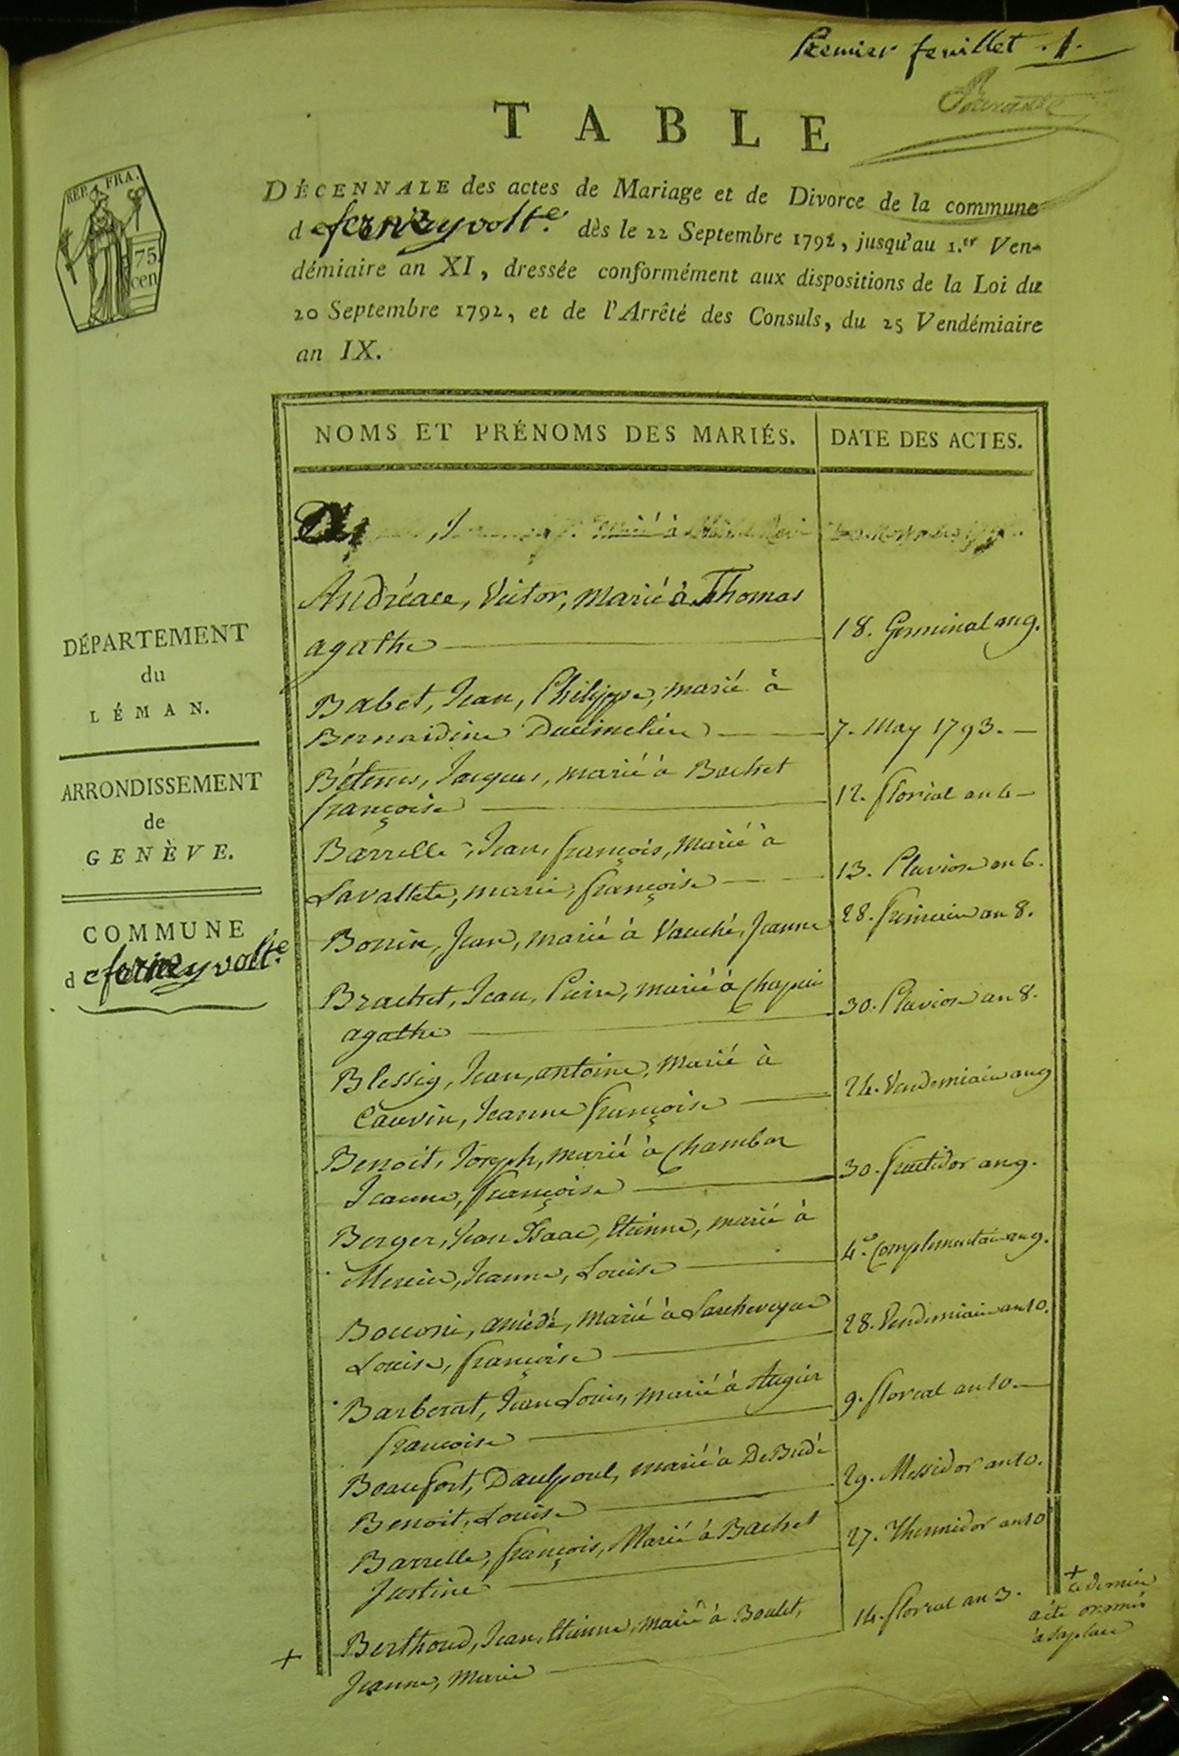 Premier feuillet . 1.
TABLE
DÉCENNALE des actes de Mariage et de Divorce de la commune
de ferneyvolt.e dès le 22 Septembre 1792, jusqu'au 1.er Ven-
démiaire an XI, dressée conformément aux dispositions de la Loi du
20 Septembre 1792, et de l'Arrêté des Consuls, du 25 Vendémiaire
an IX.
REP. FRA.
75
cen
DÉPARTEMENT
du
LÉMAN.
ARRONDISSEMENT
de
GENÈVE.
COMMUNE
de ferneyvolt.e
NOMS ET PRÉNOMS DES MARIÉS. DATE DES ACTES.
marié à
Andréace, Victor, marié à Thomas
agathe 18. Germinal an 9.
Babet, Jean, Philippe, marié à
Bernardine 7. May 1793.
Jacques, marié à Bachet
françoise 12. floréal an 4
Barrelle, Jean, françois, marié à
Lavallete, marie, françoise 13. Pluviose an 6.
Bonin, Jean, marié à Vauché, Jeanne 28. frimaire an 8.
Brachet, Jean, Pierre, marié à Chapuis
agathe 30. Pluviose an 8.
Blessig, Jean, antoine, marié à
Cauvin, Jeanne françoise 24. Vendemiaire an 9
Benoit, Joseph, marié à Chambon
Jeanne, françoise 30. fructidor an 9.
Berger, Jean Isaac, Etienne, marié à
Mercier, Jeanne, Louise 4.e Complementaire an 9.
Bocconi, amédé, marié à
Louise, françoise 28. Vendemiaire an 10.
Barberat, Jean Louis, marié à Augier
francoise 9. floreal an 10.
Beaufort, Daulpoul, marié à DeBudé
Benoit, Louise 29. Messidor an 10.
Barrelle, françois, Marié à Bachet
Justine 27. Thermidor an 10
+ Berthoud, Jean, Etienne, marié à Boulet,
Jeanne, Marie 14. floreal an 3.
+ ce dernier
acte ommis
à sa place